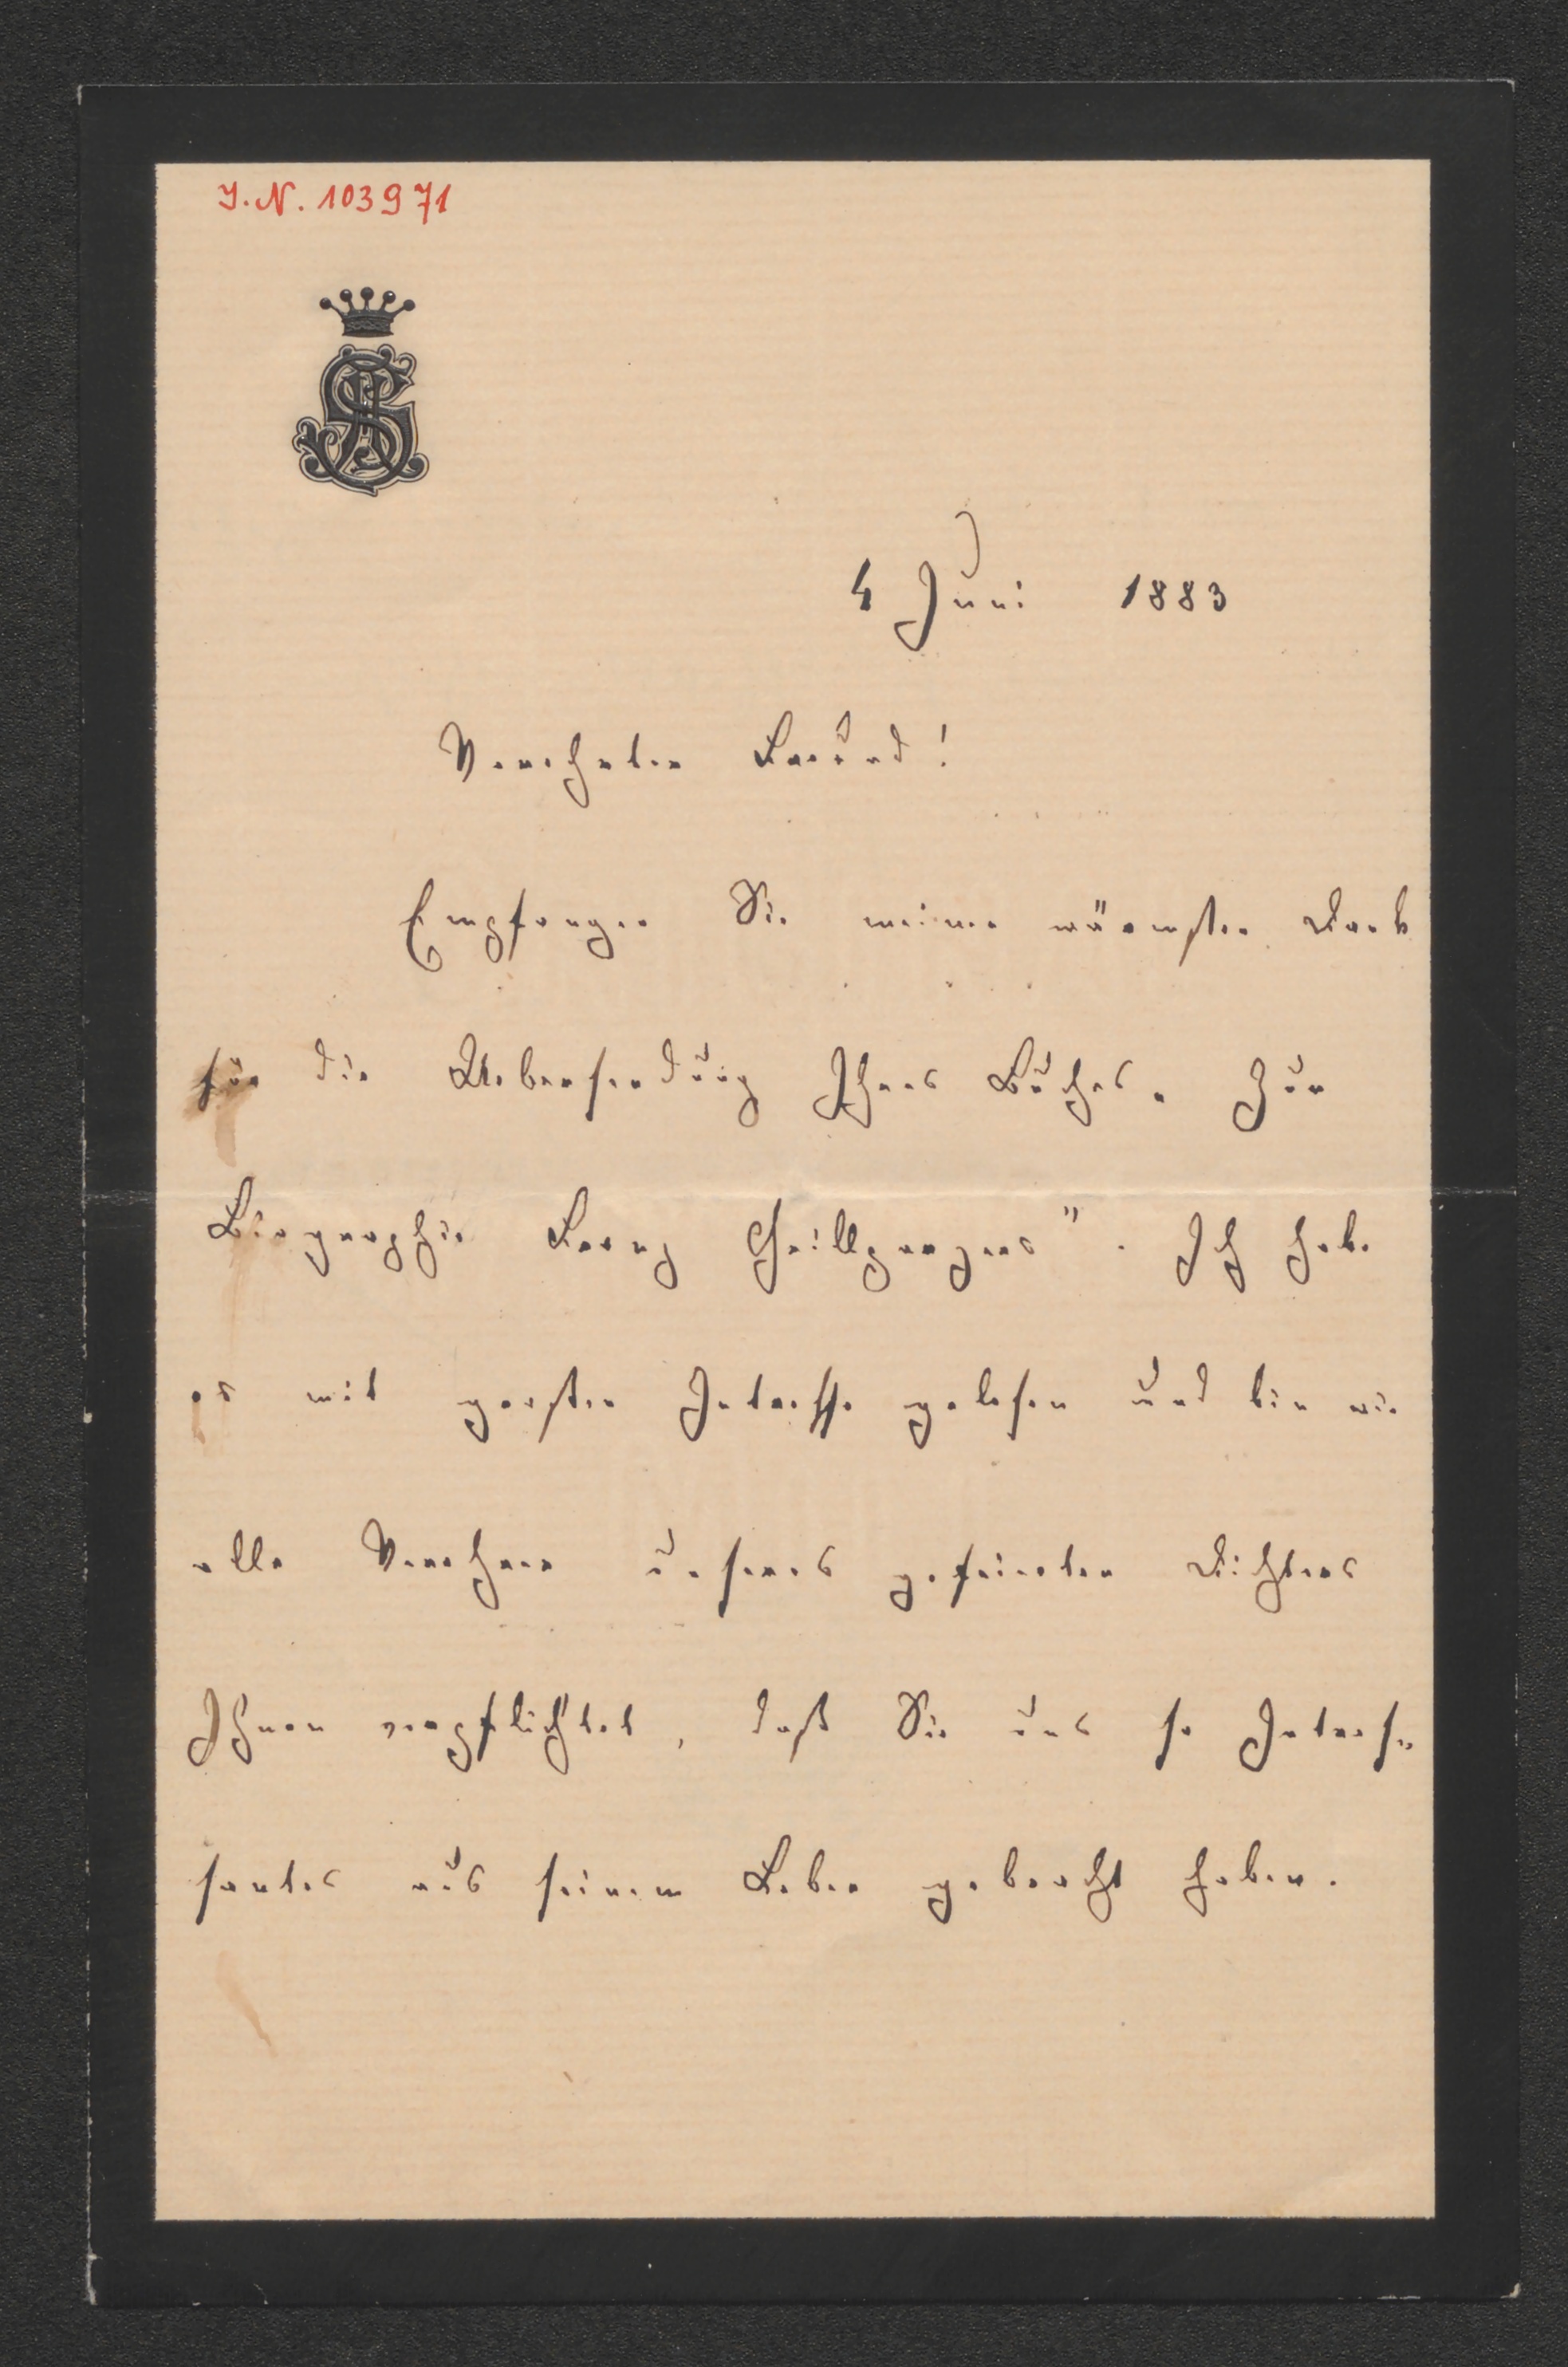 I.N. 103971
4 Juni 1883
Verehrter Freund!
Empfangen Sie meinen wärmsten Dank
für die Uebersendung Ihres Buches „Zur
Biographie Franz Grillparzers". Ich habe
es mit großem Interesse gelesen und bin wie
alle Verehrer unseres gefeierten Dichters
Ihnen verpflichtet, daß Sie uns so Interes-
santes aus seinem Leben gebracht haben.